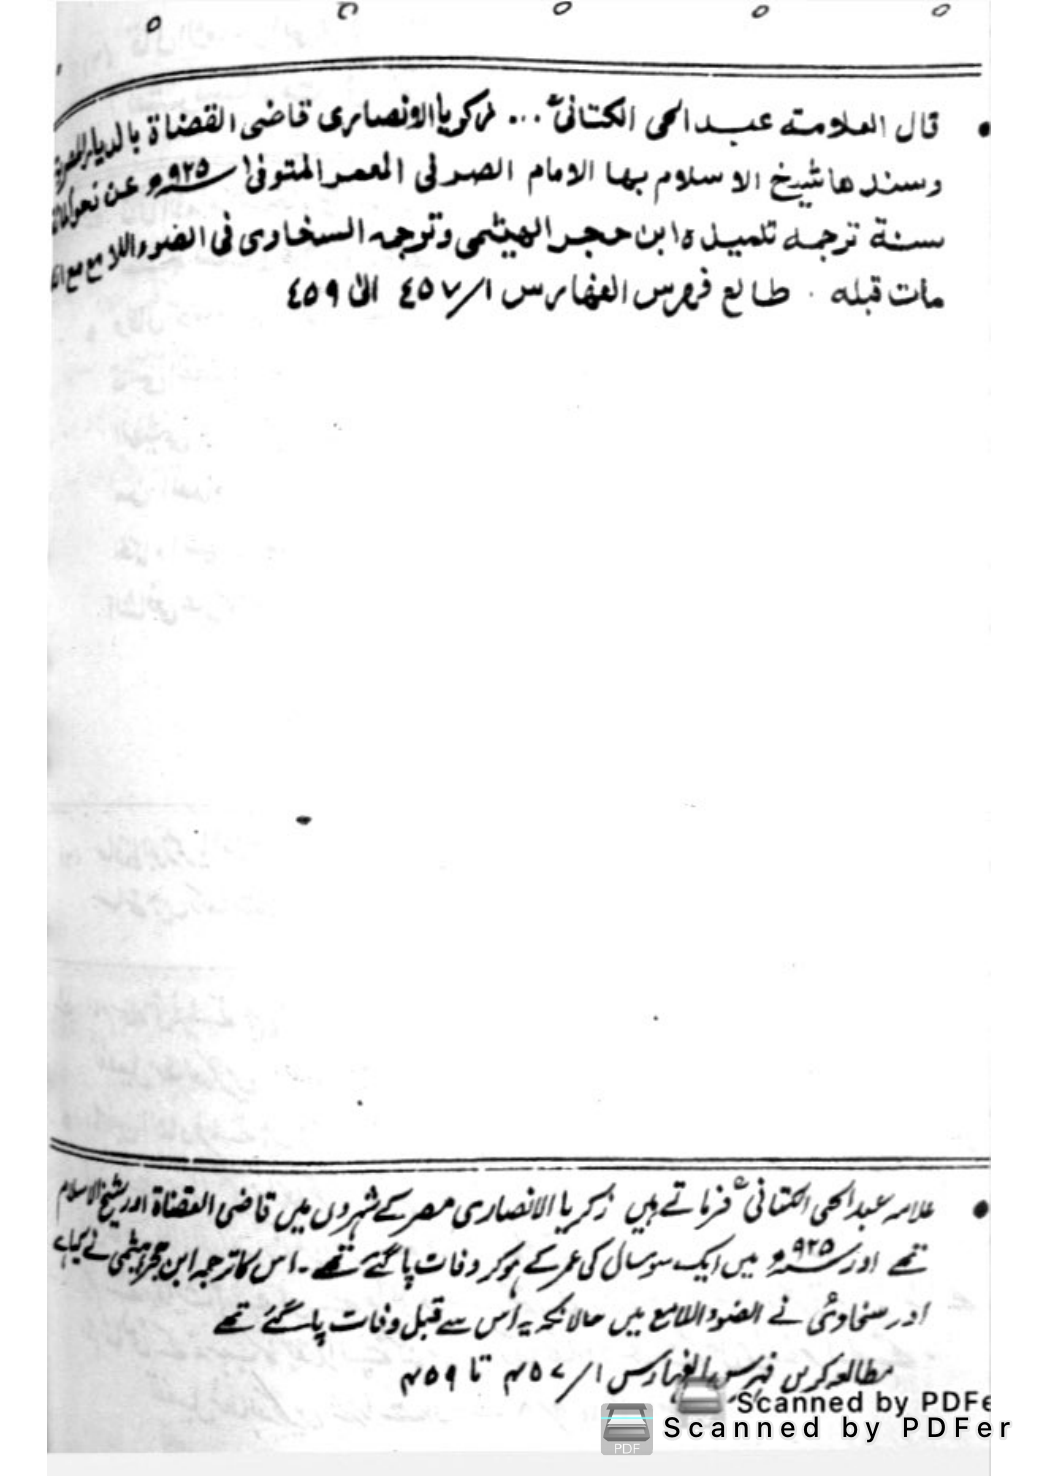 • قال العلامته عبدالحی الکتانیؒ ... زکریا الانصاری قاضی القضاة بالدیار المصریة
وسندھا شیخ الاسلام بھا الامام الصدر فی المعمر المتوفیٰ سنہ ۹۲۵ء عن نحو
سنة ترجمه تلمیذہ ابن حجر الھیتمی وترجمه السخاوی فی الضوء اللامع مع
مات قبله . طالع فہرس الفھارس ۱/۴۵۷ الیٰ ۴۵۹
• علامہ عبدالحی الکتانیؒ فرماتے ہیں زکریا الانصاری مصر کے شہروں میں قاضی القضاة اور شیخ الاسلام
تھے اور سنہ ۹۲۵ء میں ایک سو سال کی عمر کے ہو کر وفات پا گئے تھے۔ اس کا ترجمہ ابن حجر ہیثمی نے کیا ہے
اور سخاویؒ نے الضوء اللامع میں حالانکہ یہ اس سے قبل وفات پا گئے تھے
مطالعہ کریں فہرس الفہارس ۱/۴۵۷ تا ۴۵۹
Scanned by PDFe
Scanned by PDFer
PDF